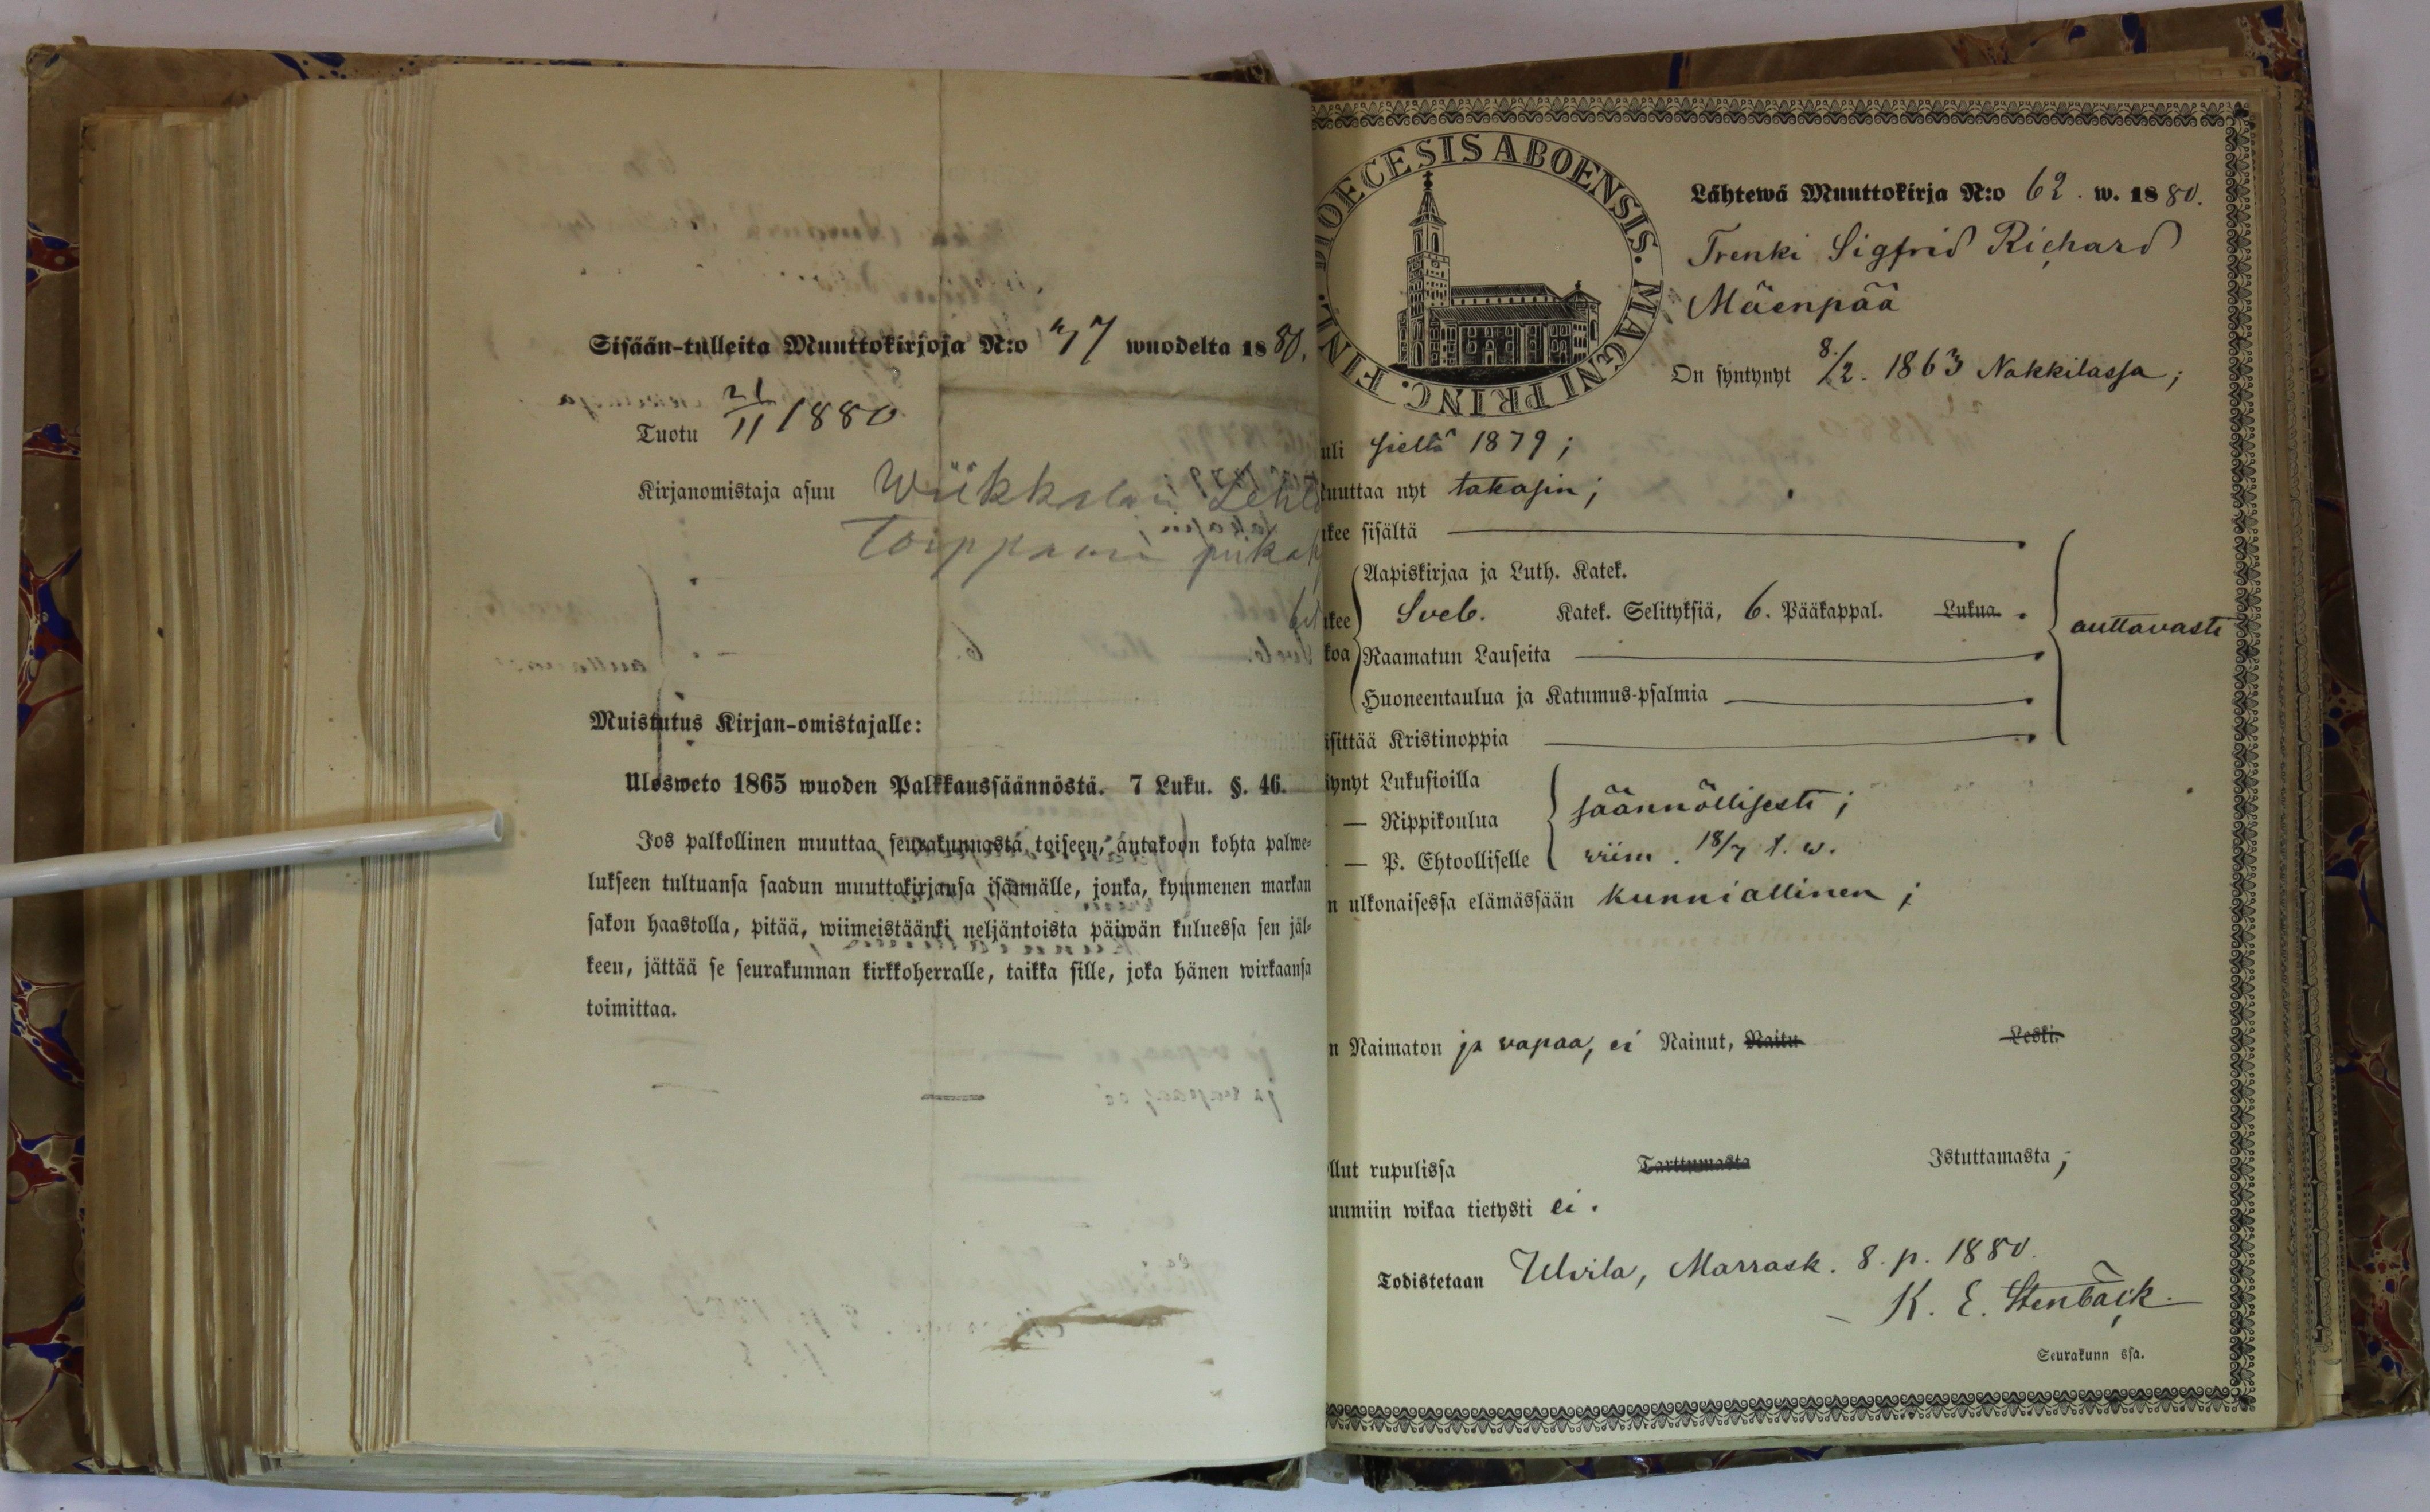 Sisään-tulleita Muuttokirjoja N:o 47 wuodelta 1880.
Tuotu 21/11 1880
Kirjanomistaja asuu Wiikkalan
Torppann
Muistutus Kirjan-omistajalle:
Ulosweto 1865 wuoden Palkkaussäännöstä. 7 Luku. §. 46.
Jos palkollinen muuttaa seurakunnasta toiseen, antakoon kohta palwe-
lukseen tultuansa saadun muuttokirjansa isännälle, jonka, kymmenen markan
sakon haastolla, pitää, wiimeistäänki neljäntoista päiwän kuluessa sen jäl-
keen, jättää se seurakunnan kirkkoherralle, taikka sille, joka hänen wirkaansa
toimittaa.
DIOECESIS ABOENSIS. MAGNI PRINC. FINL.
Lähtewä Muuttokirja N:o 62. w. 1880.
Trenki Sigfrid Richard
Mäenpää
On syntynyt 8./2. 1863 Nakkilassa;
uli sieltä 1879;
uuttaa nyt takasin;
kee sisältä
Aapiskirjaa ja Luth. Katek.
kee Sveb. Katek. Selityksiä, 6. Pääkappal. Lukua. auttavasti
koa Raamatun Lauseita
Huoneentaulua ja Katumus-psalmia
sittää Kristinoppia
ynyt Lukusioilla
— Rippikoulua säännöllisesti;
— P. Ehtoolliselle viim. 18/7 t. w.
n ulkonaisessa elämässään kunniallinen;
n Naimaton ja vapaa, ei Nainut, Naitu Leski.
llut rupulissa Tarttumasta Istuttamasta;
uumiin wikaa tietysti ei.
Todistetaan Ulvila, Marrask. 8. p. 1880.
K. E. Stenbäck.
Seurakunn ssa.